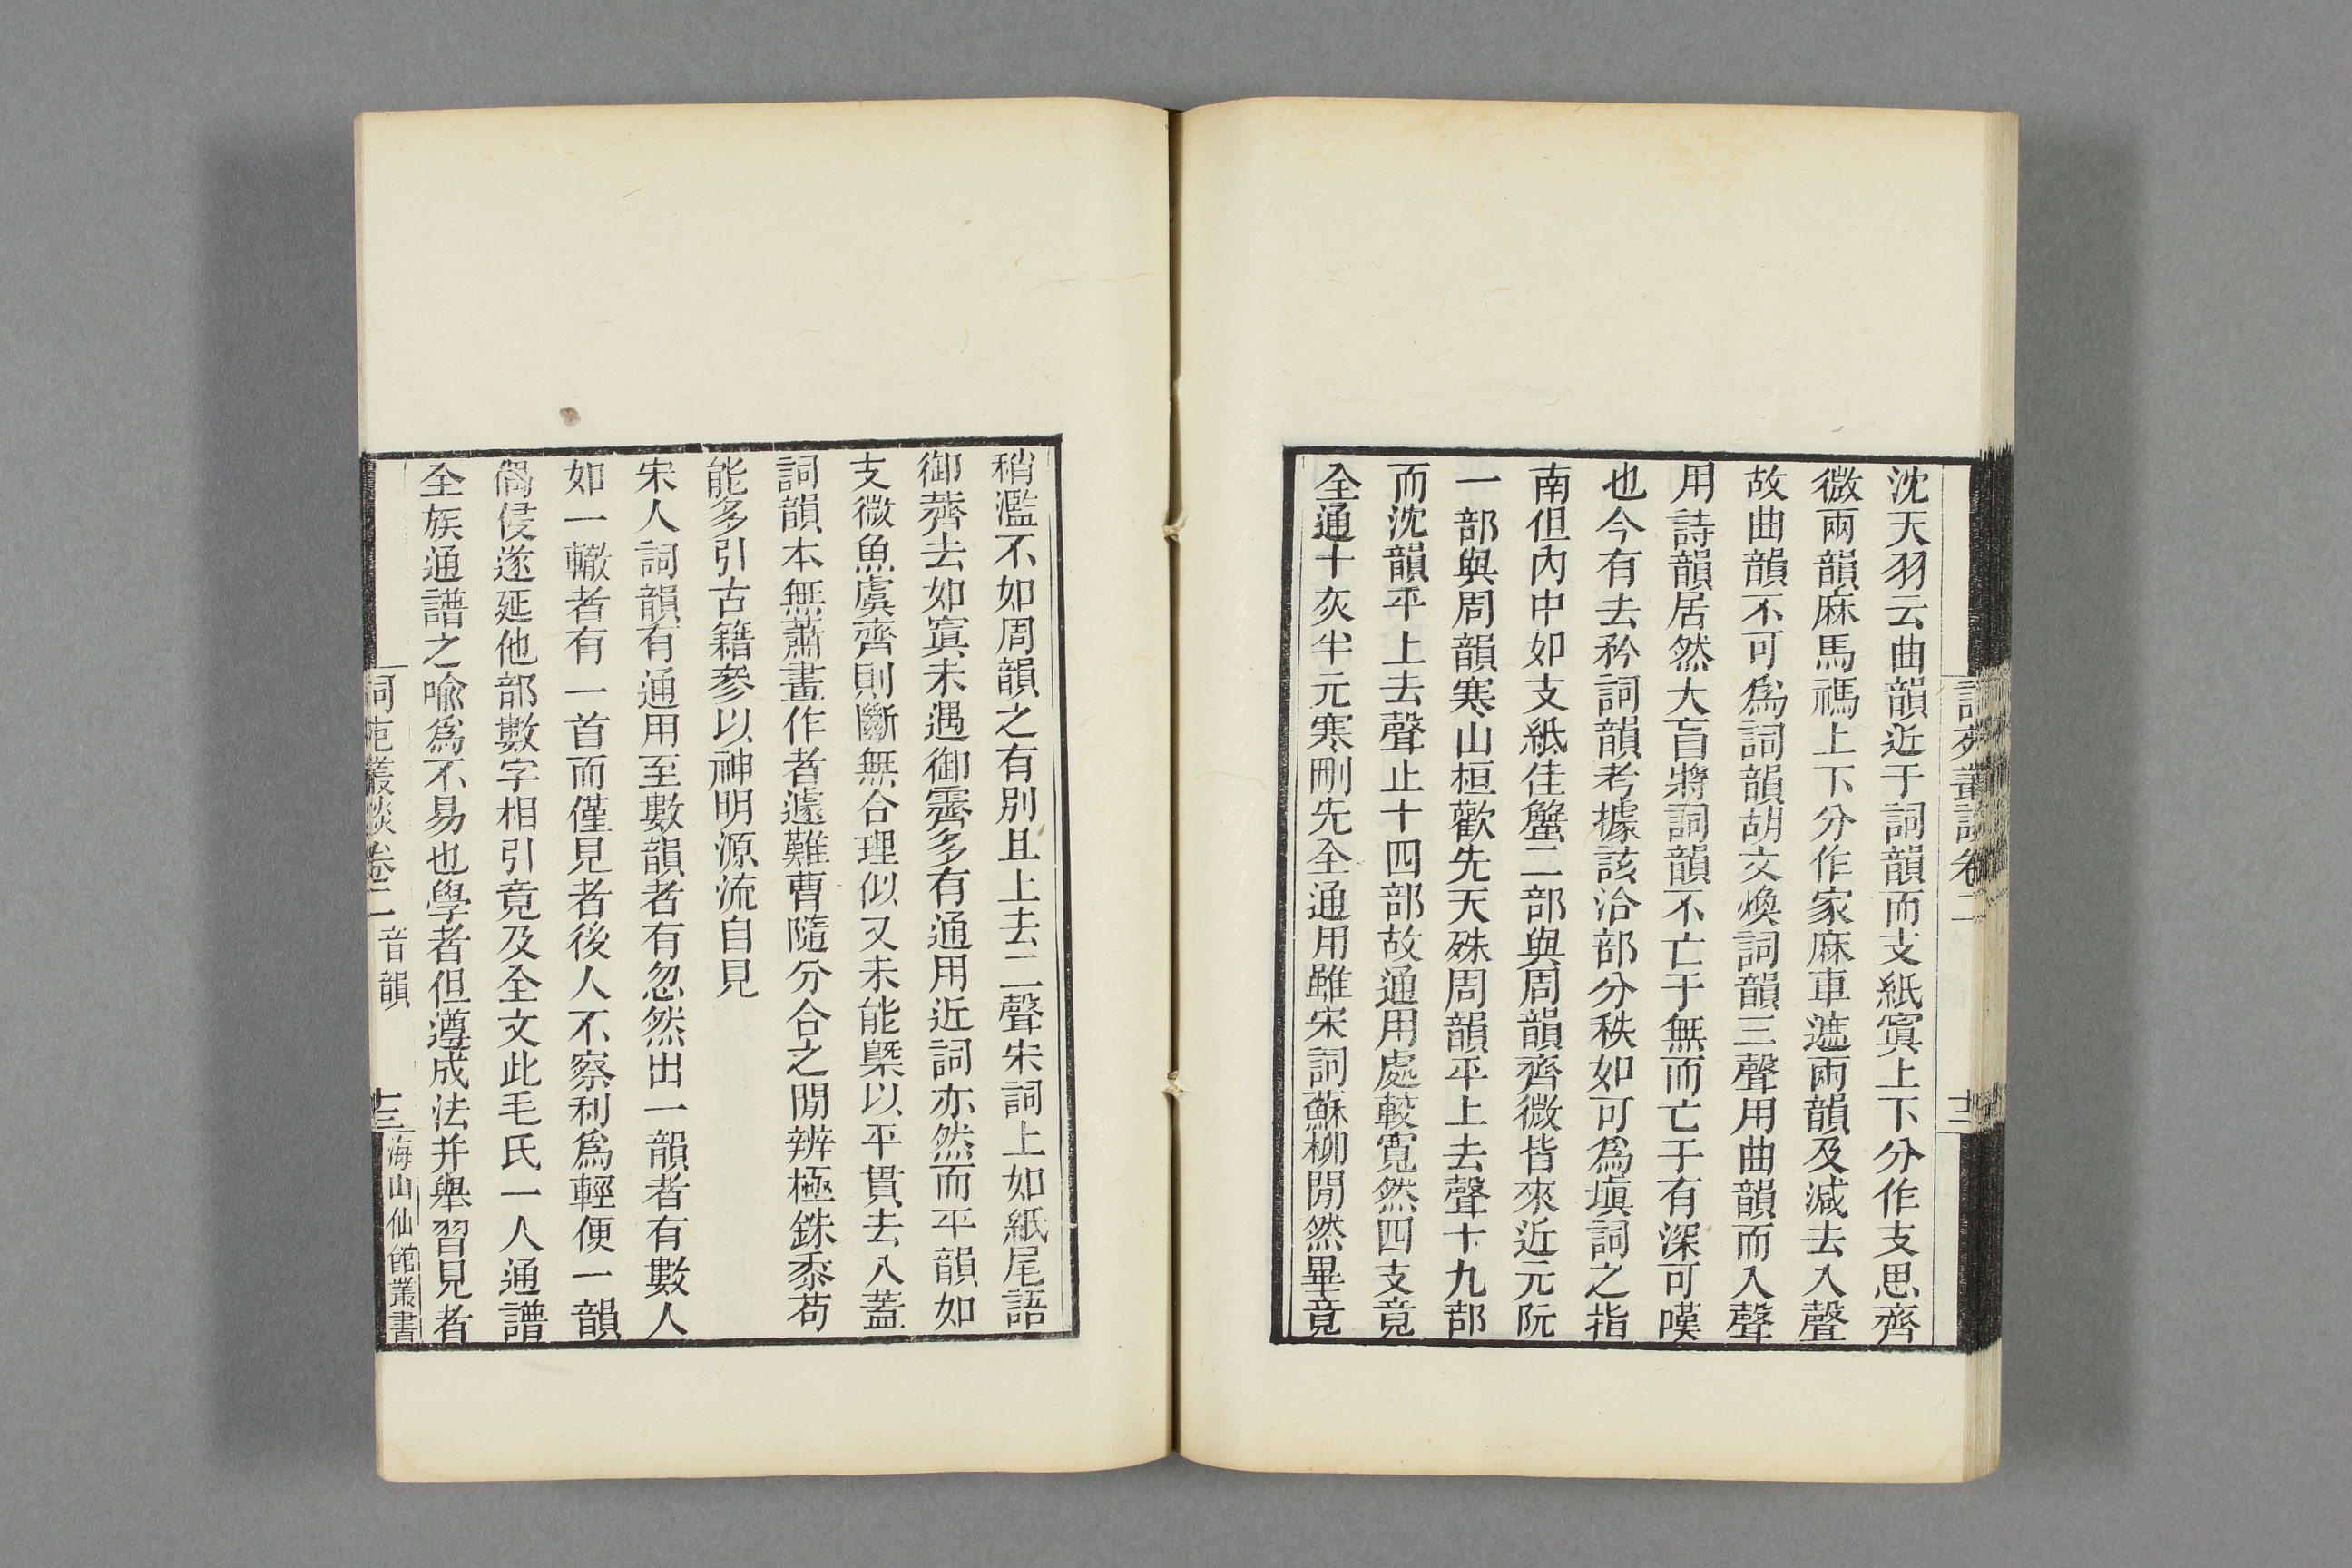 沈天羽云曲韻近于詞韻而支紙寘上下分作支思齊
微兩韻麻馬禡上下分作家麻車遮兩韻及減去入聲
故曲韻不可爲詞韻胡文煥詞韻三聲用曲韻而入聲
用詩韻居然大盲將詞韻不亡于無而亡于有深可嘆
也今有去矜詞韻考據該洽部分秩如可爲塡詞之指
南但內中如支紙佳蟹二部與周韻齊微皆來近元阮
一部與周韻寒山桓歡先天殊周韻平上去聲十九部
而沈韻平上去聲止十四部故通用處較寬然四支竟
全通十灰半元寒刪先全通用雖宋詞蘇柳閒然畢竟
稍濫不如周韻之有別且上去二聲宋詞上如紙尾語
御薺去如寘未遇御霽多有通用近詞亦然而平韻如
支微魚虞齊則斷無合理似又未能槩以平貫去入蓋
詞韻本無蕭畫作者遽難曹隨分合之閒辨極銖黍苟
能多引古籍參以神明源流自見
宋人詞韻有通用至數韻者有忽然出一韻者有數人
如一轍者有一首而僅見者後人不察利爲輕便一韻
偶侵遂延他部數字相引竟及全文此毛氏一人通譜
全族通譜之喻爲不易也學者但遵成法并舉習見者
詞苑叢談卷二 音韻
十三
海山仙館叢書